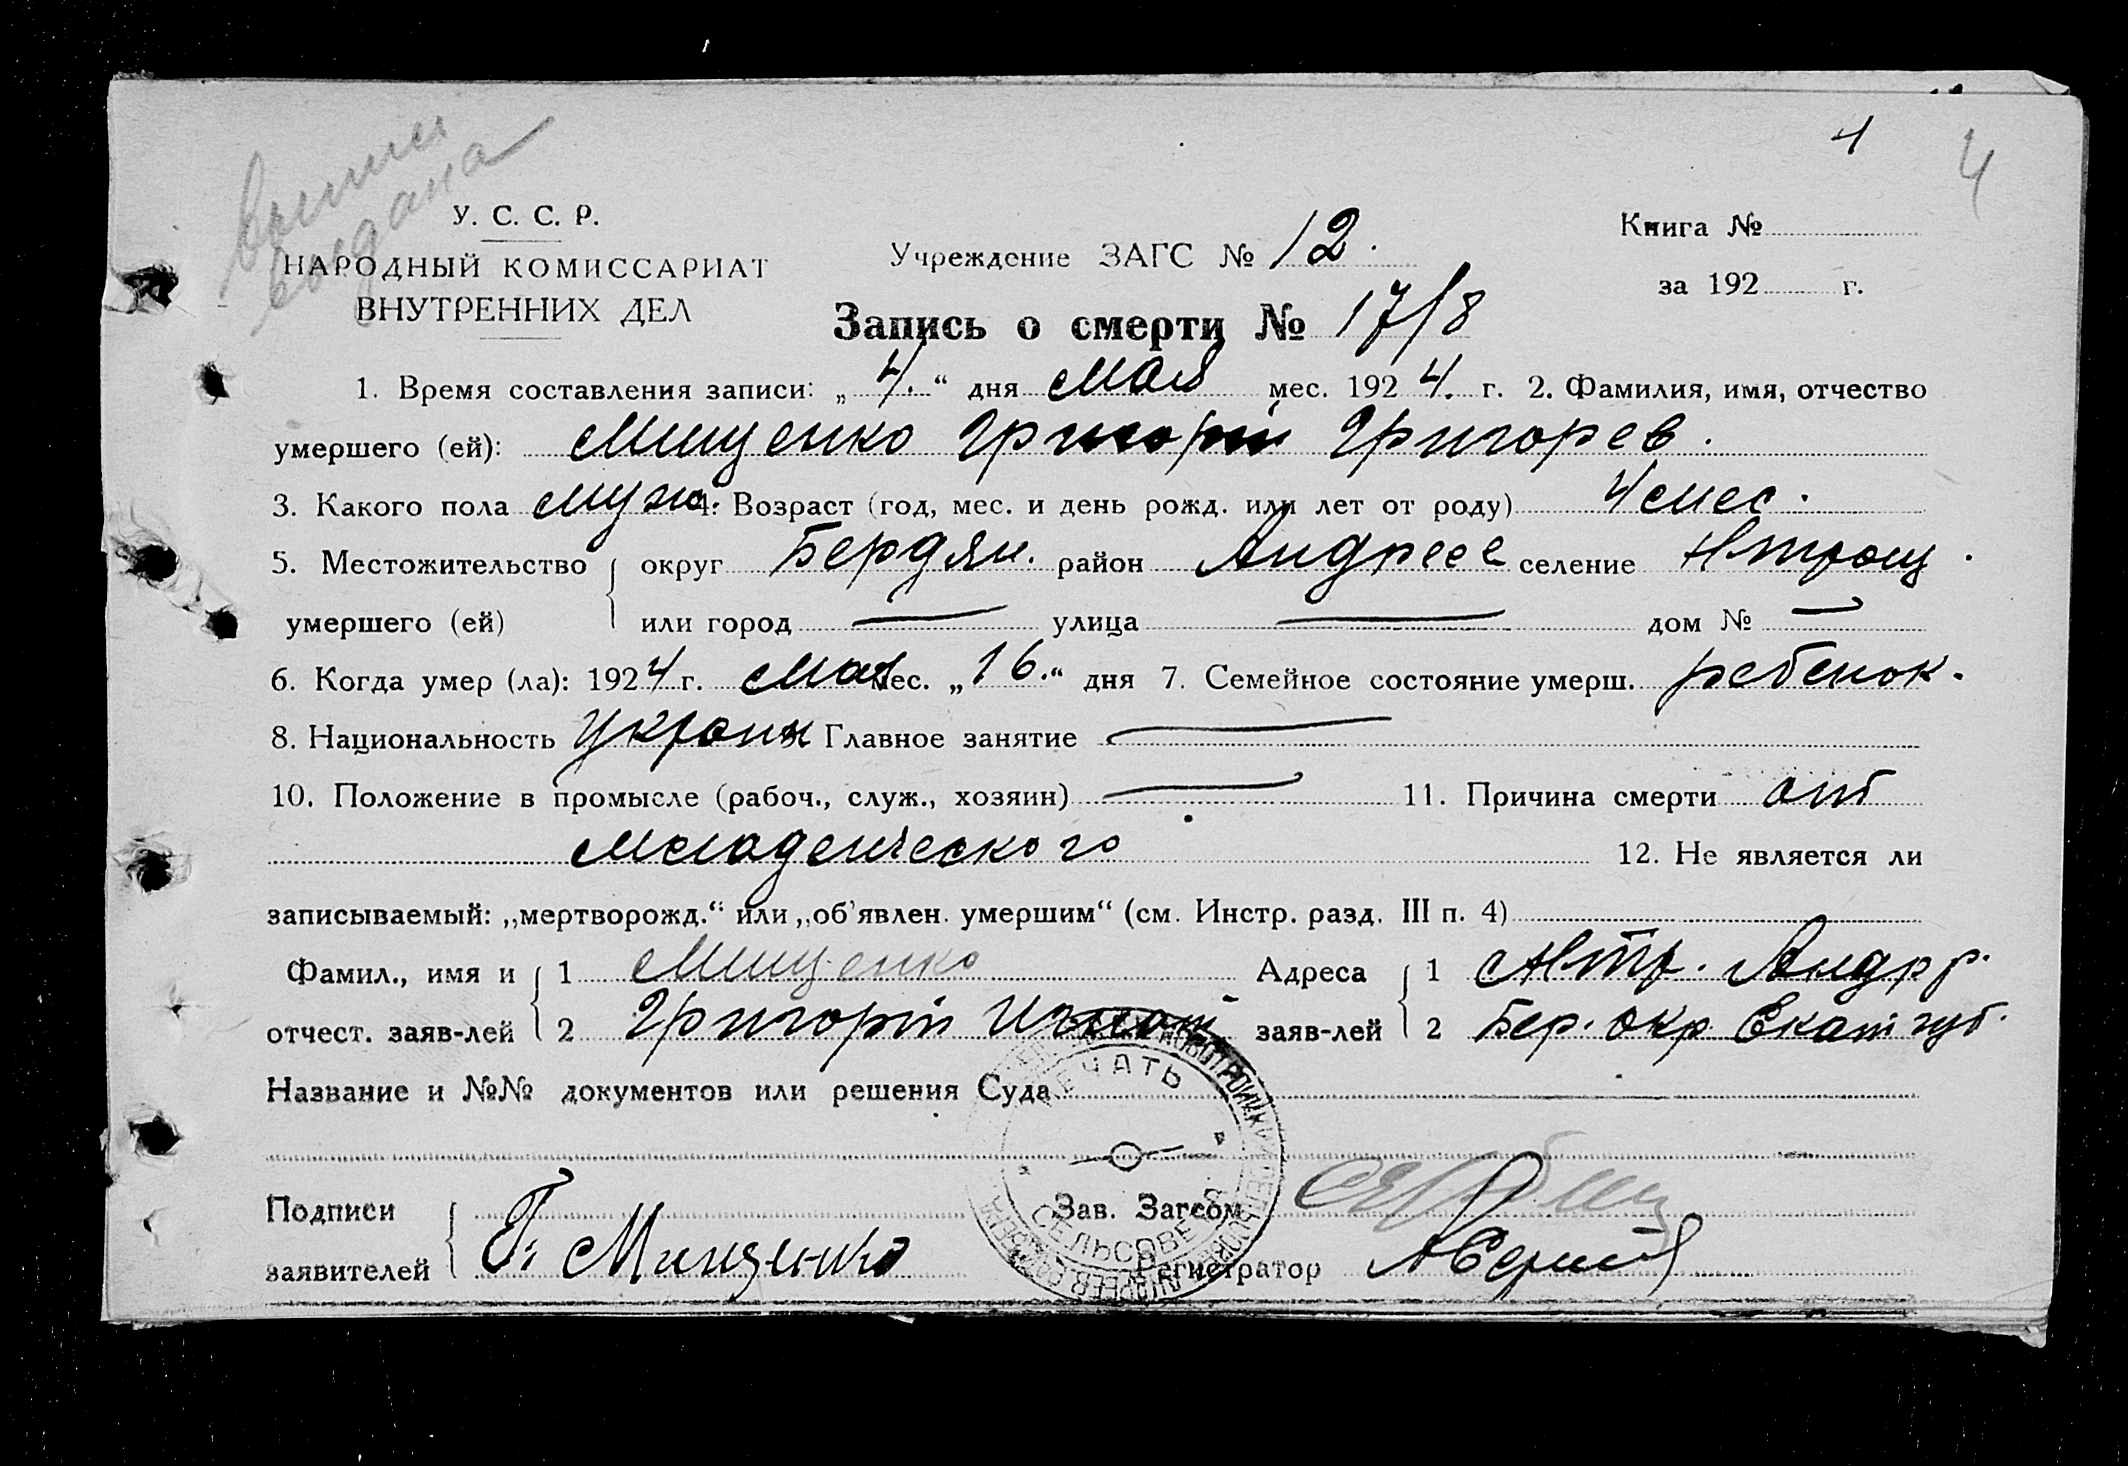 4 4
выпись
выдана
У. С. С. Р.
НАРОДНЫЙ КОМИССАРИАТ
ВНУТРЕННИХ ДЕЛ
Учреждение ЗАГС № 12.
Книга №
за 192 г.
Запись о смерти № 17/8
1. Время составления записи: „4.“ дня мая мес. 1924. г. 2. Фамилия, имя, отчество
умершего (ей): Мищенко Григорій Григорев.
3. Какого пола муж. 4. Возраст (год, мес. и день рожд. или лет от роду) 4 мес.
5. Местожительство округ Бердян. район Андреев селение Нтроиц.
умершего (ей) или город — улица — дом № —
6. Когда умер (ла): 1924 г. мая мес. „16.“ дня 7. Семейное состояние умерш. ребенок.
8. Национальность украин Главное занятие —
10. Положение в промысле (рабоч., служ., хозяин) — 11. Причина смерти от
младенческого 12. Не является ли
записываемый: „мертворожд.“ или „об'явлен. умершим“ (см. Инстр. разд. III п. 4)
Фамил., имя и 1 Мищенко Адреса 1 Нтр. Андр р.
отчест. заяв-лей 2 Григорій заяв-лей 2 Бер. окр. Екат губ.
Название и №№ документов или решения Суда
Подписи Зав. Загсом
заявителей Г. Мищенко Регистратор
ПЕЧАТЬ
СЕЛЬСОВЕТА